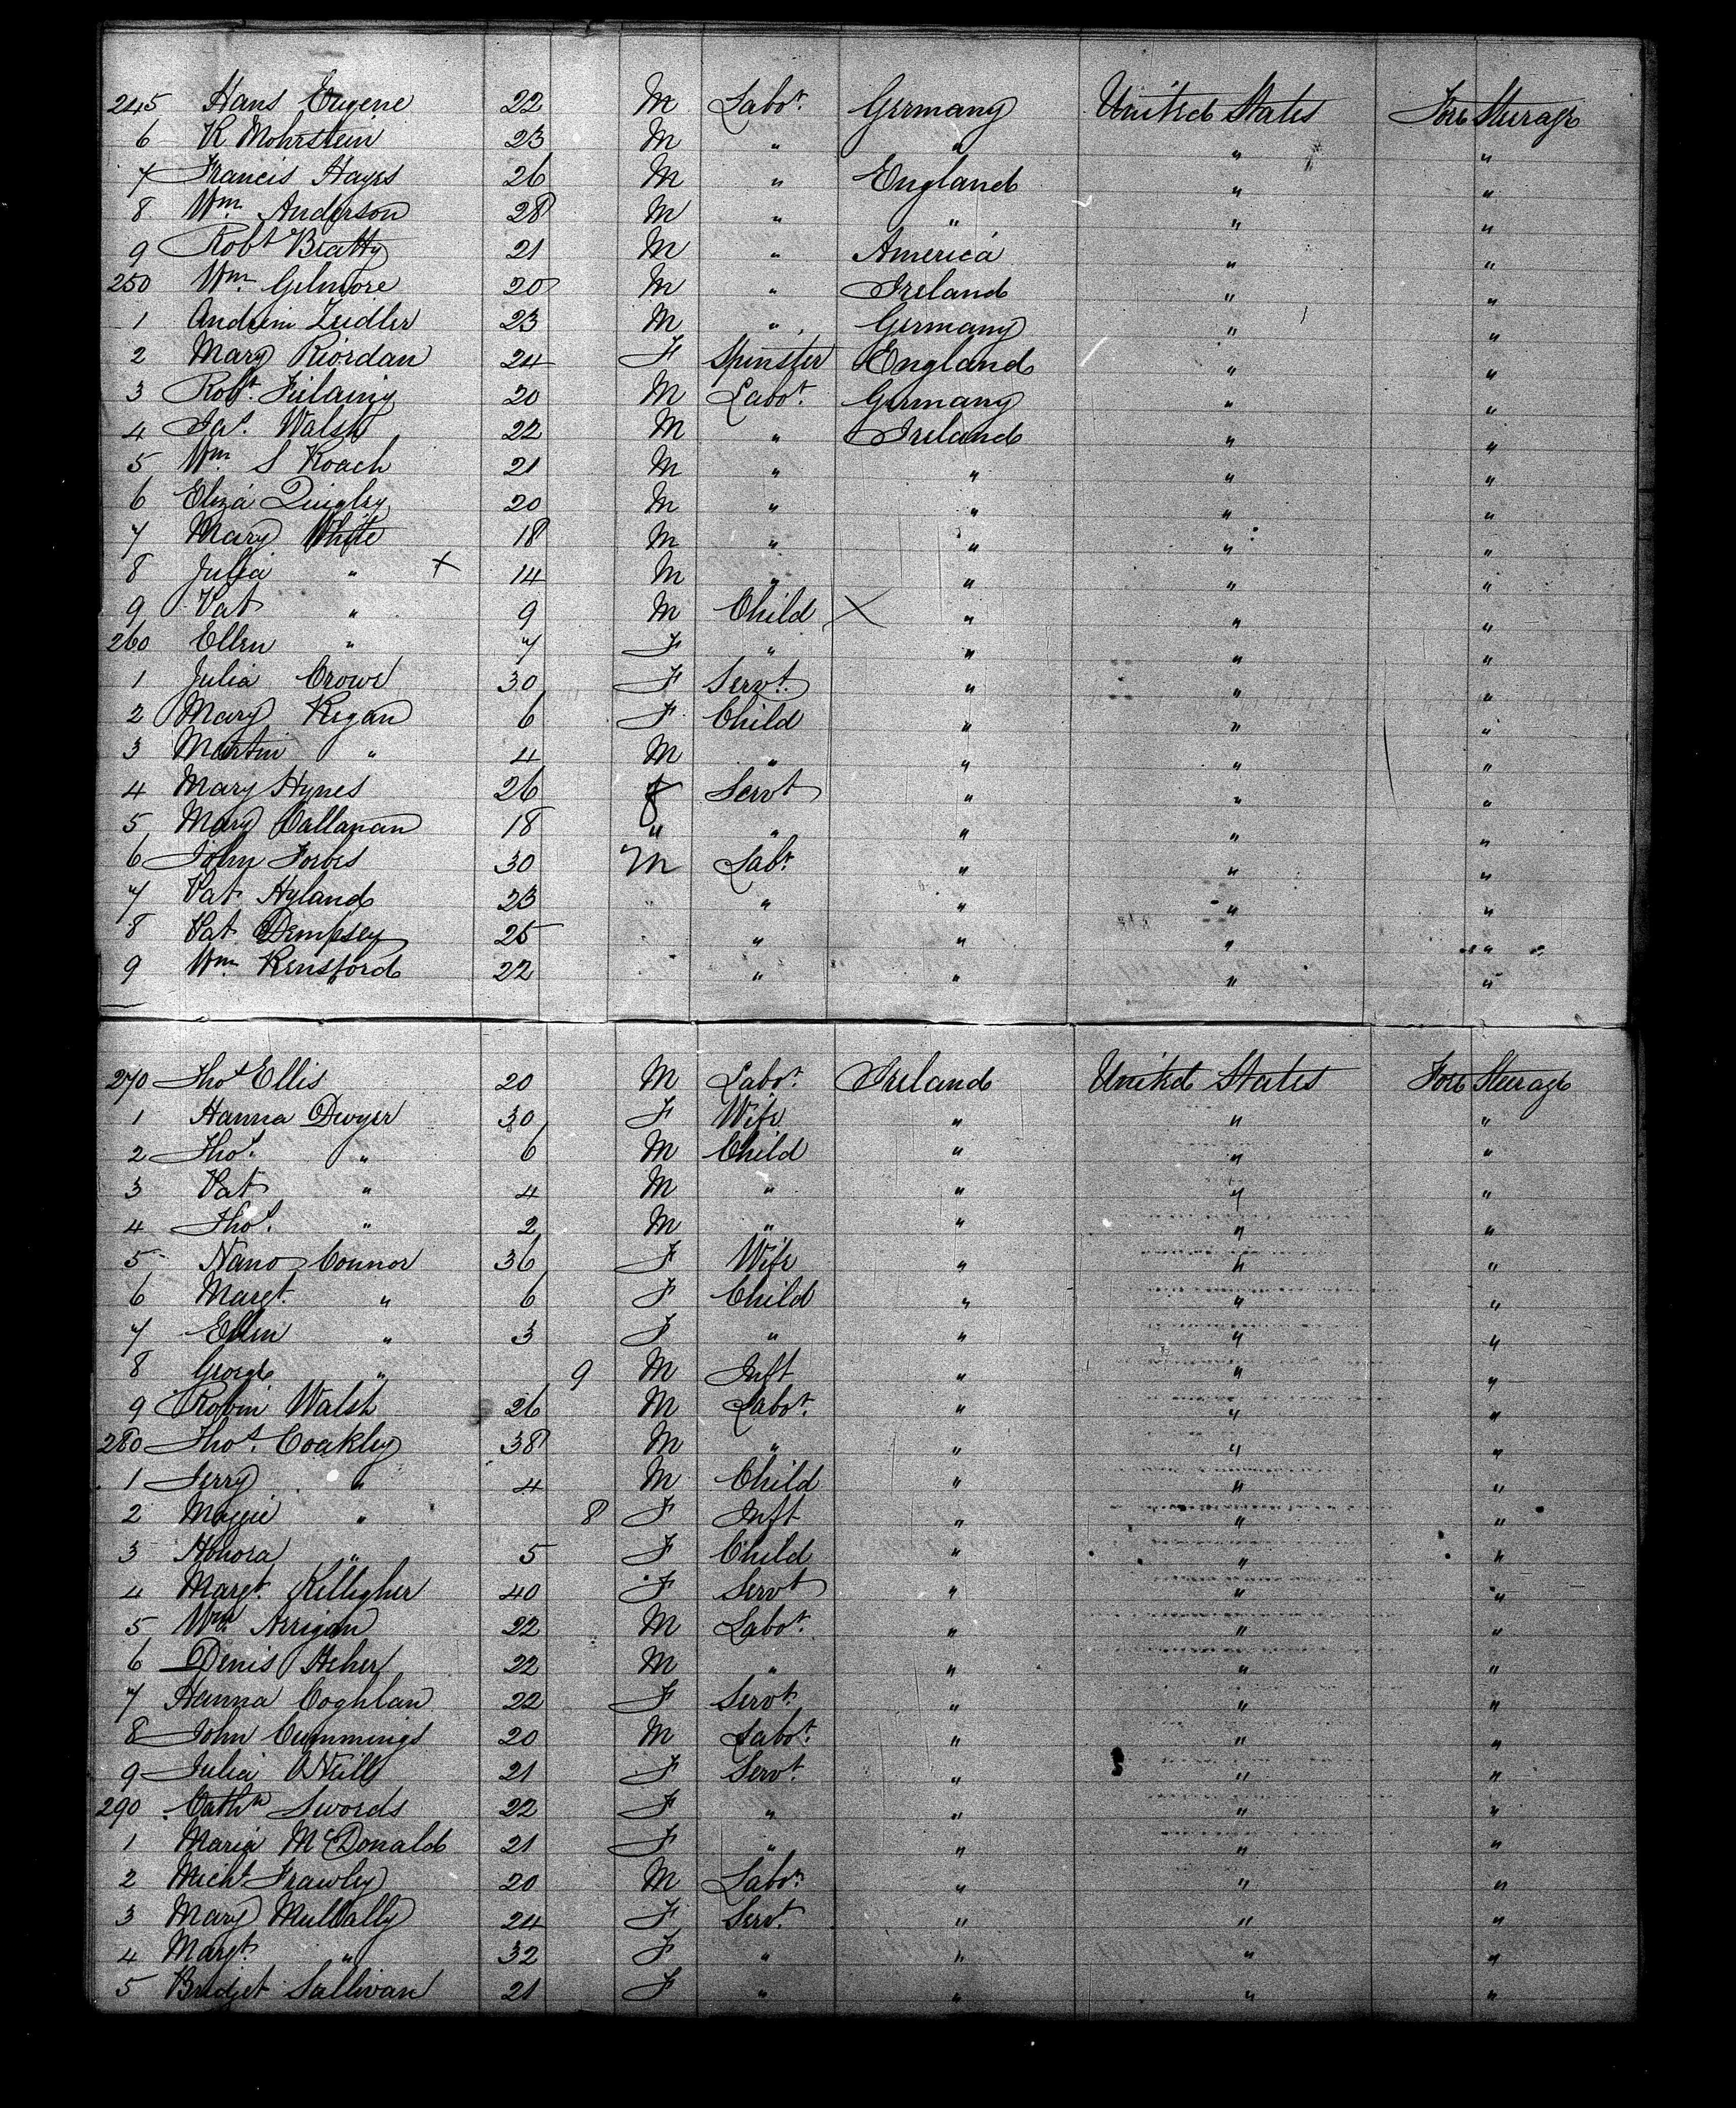 245 Hans Eugene 22 M Labor. Germany United States Fore Steerage
6 K Mohrstein 23 M " " " "
7 Francis Hayes 26 M " England " "
8 Wm. Anderson 28 M " " " "
9 Robt Beatty 21 M " America " "
250 Wm. Gilmore 20 M " Ireland " "
1 Zeidler 23 M " Germany " "
2 Mary Riordan 24 F Spinster England " "
3 Robt. 20 M Labor. Germany " "
4 Jas. Walsh 22 M " Ireland " "
5 Wm S Roach 21 M " " " "
6 Eliza Quigley 20 M " " " "
7 Mary White 18 M " " " "
8 Julia " X 14 M " " " "
9 Pat " 9 M Child X " " "
260 Ellen " 7 F " " " "
1 Julia Crowe 30 F Servt. " " "
2 Mary Regan 6 F Child " " "
3 Martin " 4 M " " " "
4 Mary Hynes 26 f Servt " " "
5 Mary Callanan 18 " " " " "
6 John Forbes 30 M Labr " " "
7 Pat Hyland 23 " " " " "
8 Pat Dempsey 25 " " " "
9 Wm Rensford 22 " " " "
270 Thos Ellis 20 M Labor. Ireland United States Fore Steerage
1 Hanna Dwyer 30 F Wife " " "
2 Thos. " 6 M Child " " "
3 Pat " 4 M " " " "
4 Thos. " 2 M " " " "
5 Nano Connor 36 F Wife " " "
6 Margt. " 6 F Child " " "
7 Ellen " 3 F " " " "
8 George " 9 M Inft " " "
9 Robin Walsh 26 M Labor. " " "
280 Thos. Coakley 38 M " " " "
1 Jerry " 4 M Child " " "
2 Maggie " 8 F Inft " " "
3 Honora " 5 F Child " " "
4 Margt. Killigher 40 F Servt " " "
5 Wm. Arrigan 22 M Labor. " " "
6 Denis Heher 22 M " " " "
7 Hanna Coghlan 22 F Servt. " " "
8 John Cummings 20 M Labor. " " "
9 Julia ONeill 21 F Servt. " " "
290 Cathn Swords 22 F " " " "
1 Maria McDonald 21 F " " " "
2 Michl Frawley 20 M Labor. " " "
3 Mary Mullally 24 F Servt. " " "
4 Margt. " 32 F " " " "
5 Bridget Sullivan 21 F " " " "